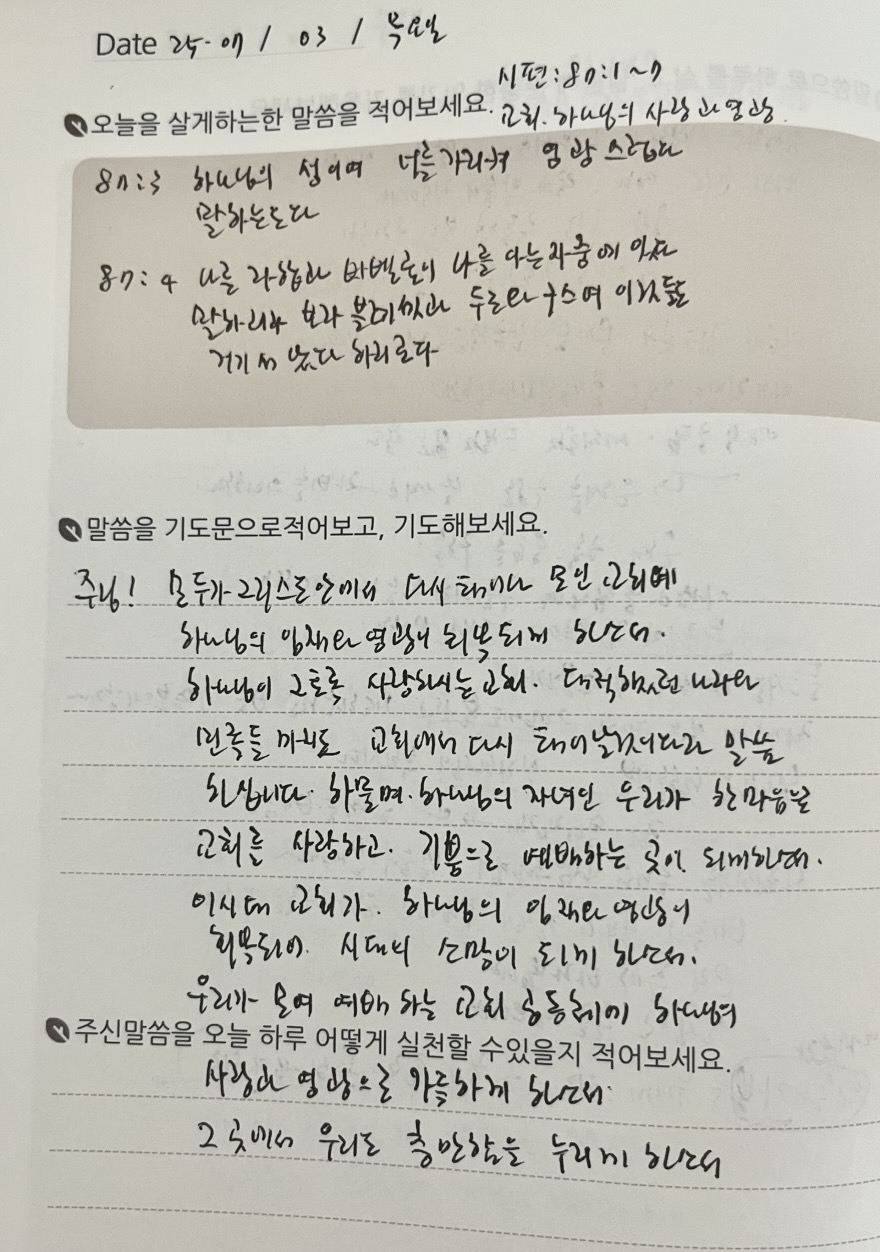 Date 25-07 / 03 / 목요일
시편:87:1~7
오늘을 살게하는한 말씀을 적어보세요.
교회. 하나님의 사랑과 영광.
87:3 하나님의 성이여 너를 가리켜 영광 스럽다
말하는도다
87:4 나를 라합과 바벨론이 나를 아는자 중에 있다
말하리라 보라 블레셋과 두로와 구스여 이것들도
거기서 났다 하리로다
말씀을 기도문으로적어보고, 기도해보세요.
주님! 모두가 그리스도안에서 다시 태어나 모인 교회에
하나님의 임재와 영광이 회복되게 하소서.
하나님이 그토록 사랑하시는 교회. 대적하였던 나라와
민족들 마저도 교회에서 다시 태어날것이다라 말씀
하십니다. 하물며. 하나님의 자녀인 우리가 한마음으로
교회를 사랑하고. 기쁨으로 예배하는 곳이 되게하소서.
이시대 교회가. 하나님의 임재와 영광이
회복되어. 시대의 소망이 되게 하소서.
우리가 모여 예배 하는 교회 공동체에 하나님의
주신말씀을 오늘 하루 어떻게 실천할 수있을지 적어보세요.
사랑과 영광으로 가득하게 하소서.
그 곳에서 우리도 충만함을 누리게 하소서